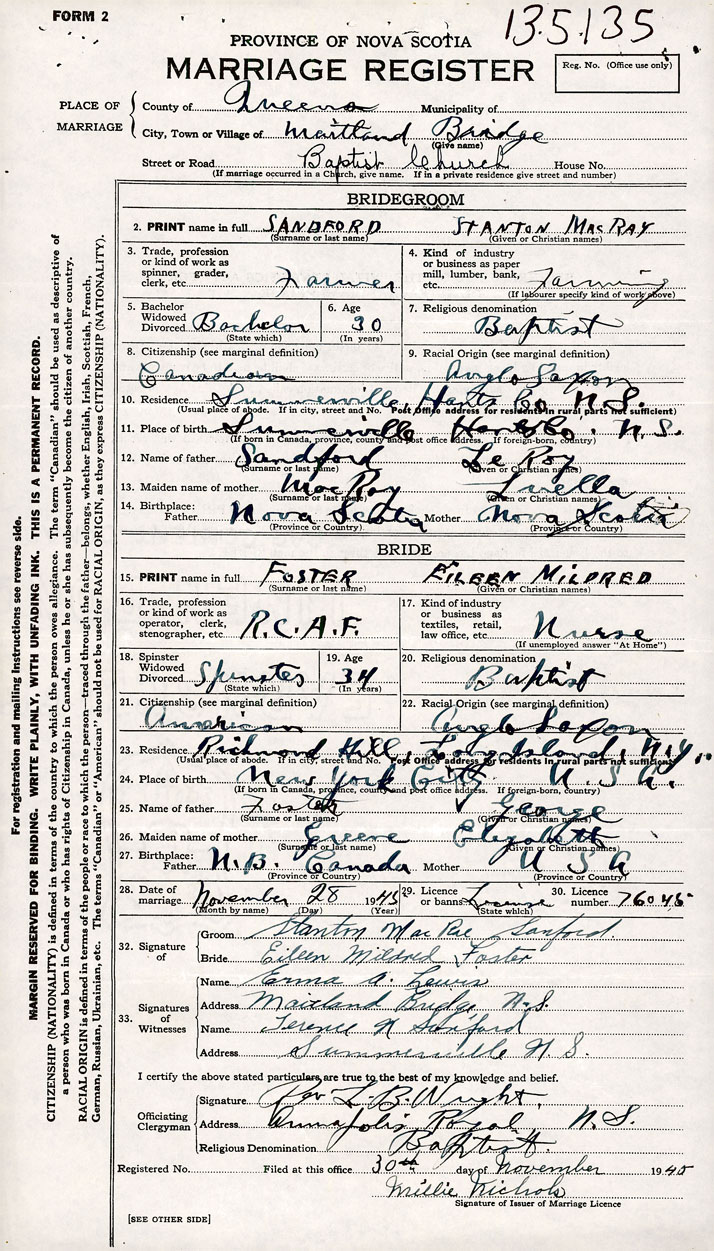 FORM 2
135135
PROVINCE OF NOVA SCOTIA
MARRIAGE REGISTER
Reg. No. (Office use only)
PLACE OF MARRIAGE
County of Queens Municipality of
City, Town or Village of Maitland Bridge
(Give name)
Street or Road Baptist Church House No.
(If marriage occurred in a Church, give name. If in a private residence give street and number)
BRIDEGROOM
2. PRINT name in full SANDFORD STANTON MACRAY
(Surname or last name) (Given or Christian names)
3. Trade, profession or kind of work as spinner, grader, clerk, etc. Farmer
4. Kind of industry or business as paper mill, lumber, bank, etc. Farming
(If labourer specify kind of work above)
5. Bachelor Widowed Divorced Bachelor
(State which)
6. Age 30
(In years)
7. Religious denomination Baptist
8. Citizenship (see marginal definition) Canadian
9. Racial Origin (see marginal definition) Anglo Saxon
10. Residence Summerville, Hants Co. N.S.
(Usual place of abode. If in city, street and No. Post Office address for residents in rural parts not sufficient)
11. Place of birth Summerville Hants Co. N.S.
(If born in Canada, province, county and post office address. If foreign-born, country)
12. Name of father Sandford Le Roy
(Surname or last name) (Given or Christian names)
13. Maiden name of mother MacRay Luella
(Surname or last name) (Given or Christian names)
14. Birthplace: Father Nova Scotia Mother Nova Scotia
(Province or Country) (Province or Country)
BRIDE
15. PRINT name in full FOSTER EILEEN MILDRED
(Surname or last name) (Given or Christian names)
16. Trade, profession or kind of work as operator, clerk, stenographer, etc. R.C.A.F.
17. Kind of industry or business as textiles, retail, law office, etc. Nurse
(If unemployed answer "At Home")
18. Spinster Widowed Divorced Spinster
(State which)
19. Age 34
(In years)
20. Religious denomination Baptist
21. Citizenship (see marginal definition) American
22. Racial Origin (see marginal definition) Anglo Saxon
23. Residence Richmond Hill, Long Island, N.Y.
(Usual place of abode. If in city, street and No. Post Office address for residents in rural parts not sufficient)
24. Place of birth New York City U.S.A.
(If born in Canada, province, county and post office address. If foreign-born, country)
25. Name of father Foster George
(Surname or last name) (Given or Christian names)
26. Maiden name of mother Greene Elizabeth
(Surname or last name) (Given or Christian names)
27. Birthplace: Father N.B. Canada Mother U S A
(Province or Country) (Province or Country)
28. Date of marriage November 28 1945
(Month by name) (Day) (Year)
29. Licence or banns License
(State which)
30. Licence number 76045
32. Signature of
Groom Stanton MacRae Sanford.
Bride Eileen Mildred Foster
33. Signatures of Witnesses
Name Erma A. Lewis
Address Maitland Bridge, N.S.
Name Terence N Sanford
Address Summerville N.S.
I certify the above stated particulars are true to the best of my knowledge and belief.
Officiating Clergyman
Signature Rev L. B. Wright.
Address Annapolis Royal N.S.
Religious Denomination Baptist.
Registered No. Filed at this office 30th day of November 1945
Millie Nichols
Signature of Issuer of Marriage Licence
[SEE OTHER SIDE]
For registration and mailing instructions see reverse side.
MARGIN RESERVED FOR BINDING. WRITE PLAINLY, WITH UNFADING INK. THIS IS A PERMANENT RECORD.
CITIZENSHIP (NATIONALITY) is defined in terms of the country to which the person owes allegiance. The term "Canadian" should be used as descriptive of
a person who was born in Canada or who has rights of Citizenship in Canada, unless he or she has subsequently become the citizen of another country.
RACIAL ORIGIN is defined in terms of the people or race to which the person—traced through the father—belongs, whether English, Irish, Scottish, French,
German, Russian, Ukrainian, etc. The terms "Canadian" or "American" should not be used for RACIAL ORIGIN, as they express CITIZENSHIP (NATIONALITY).